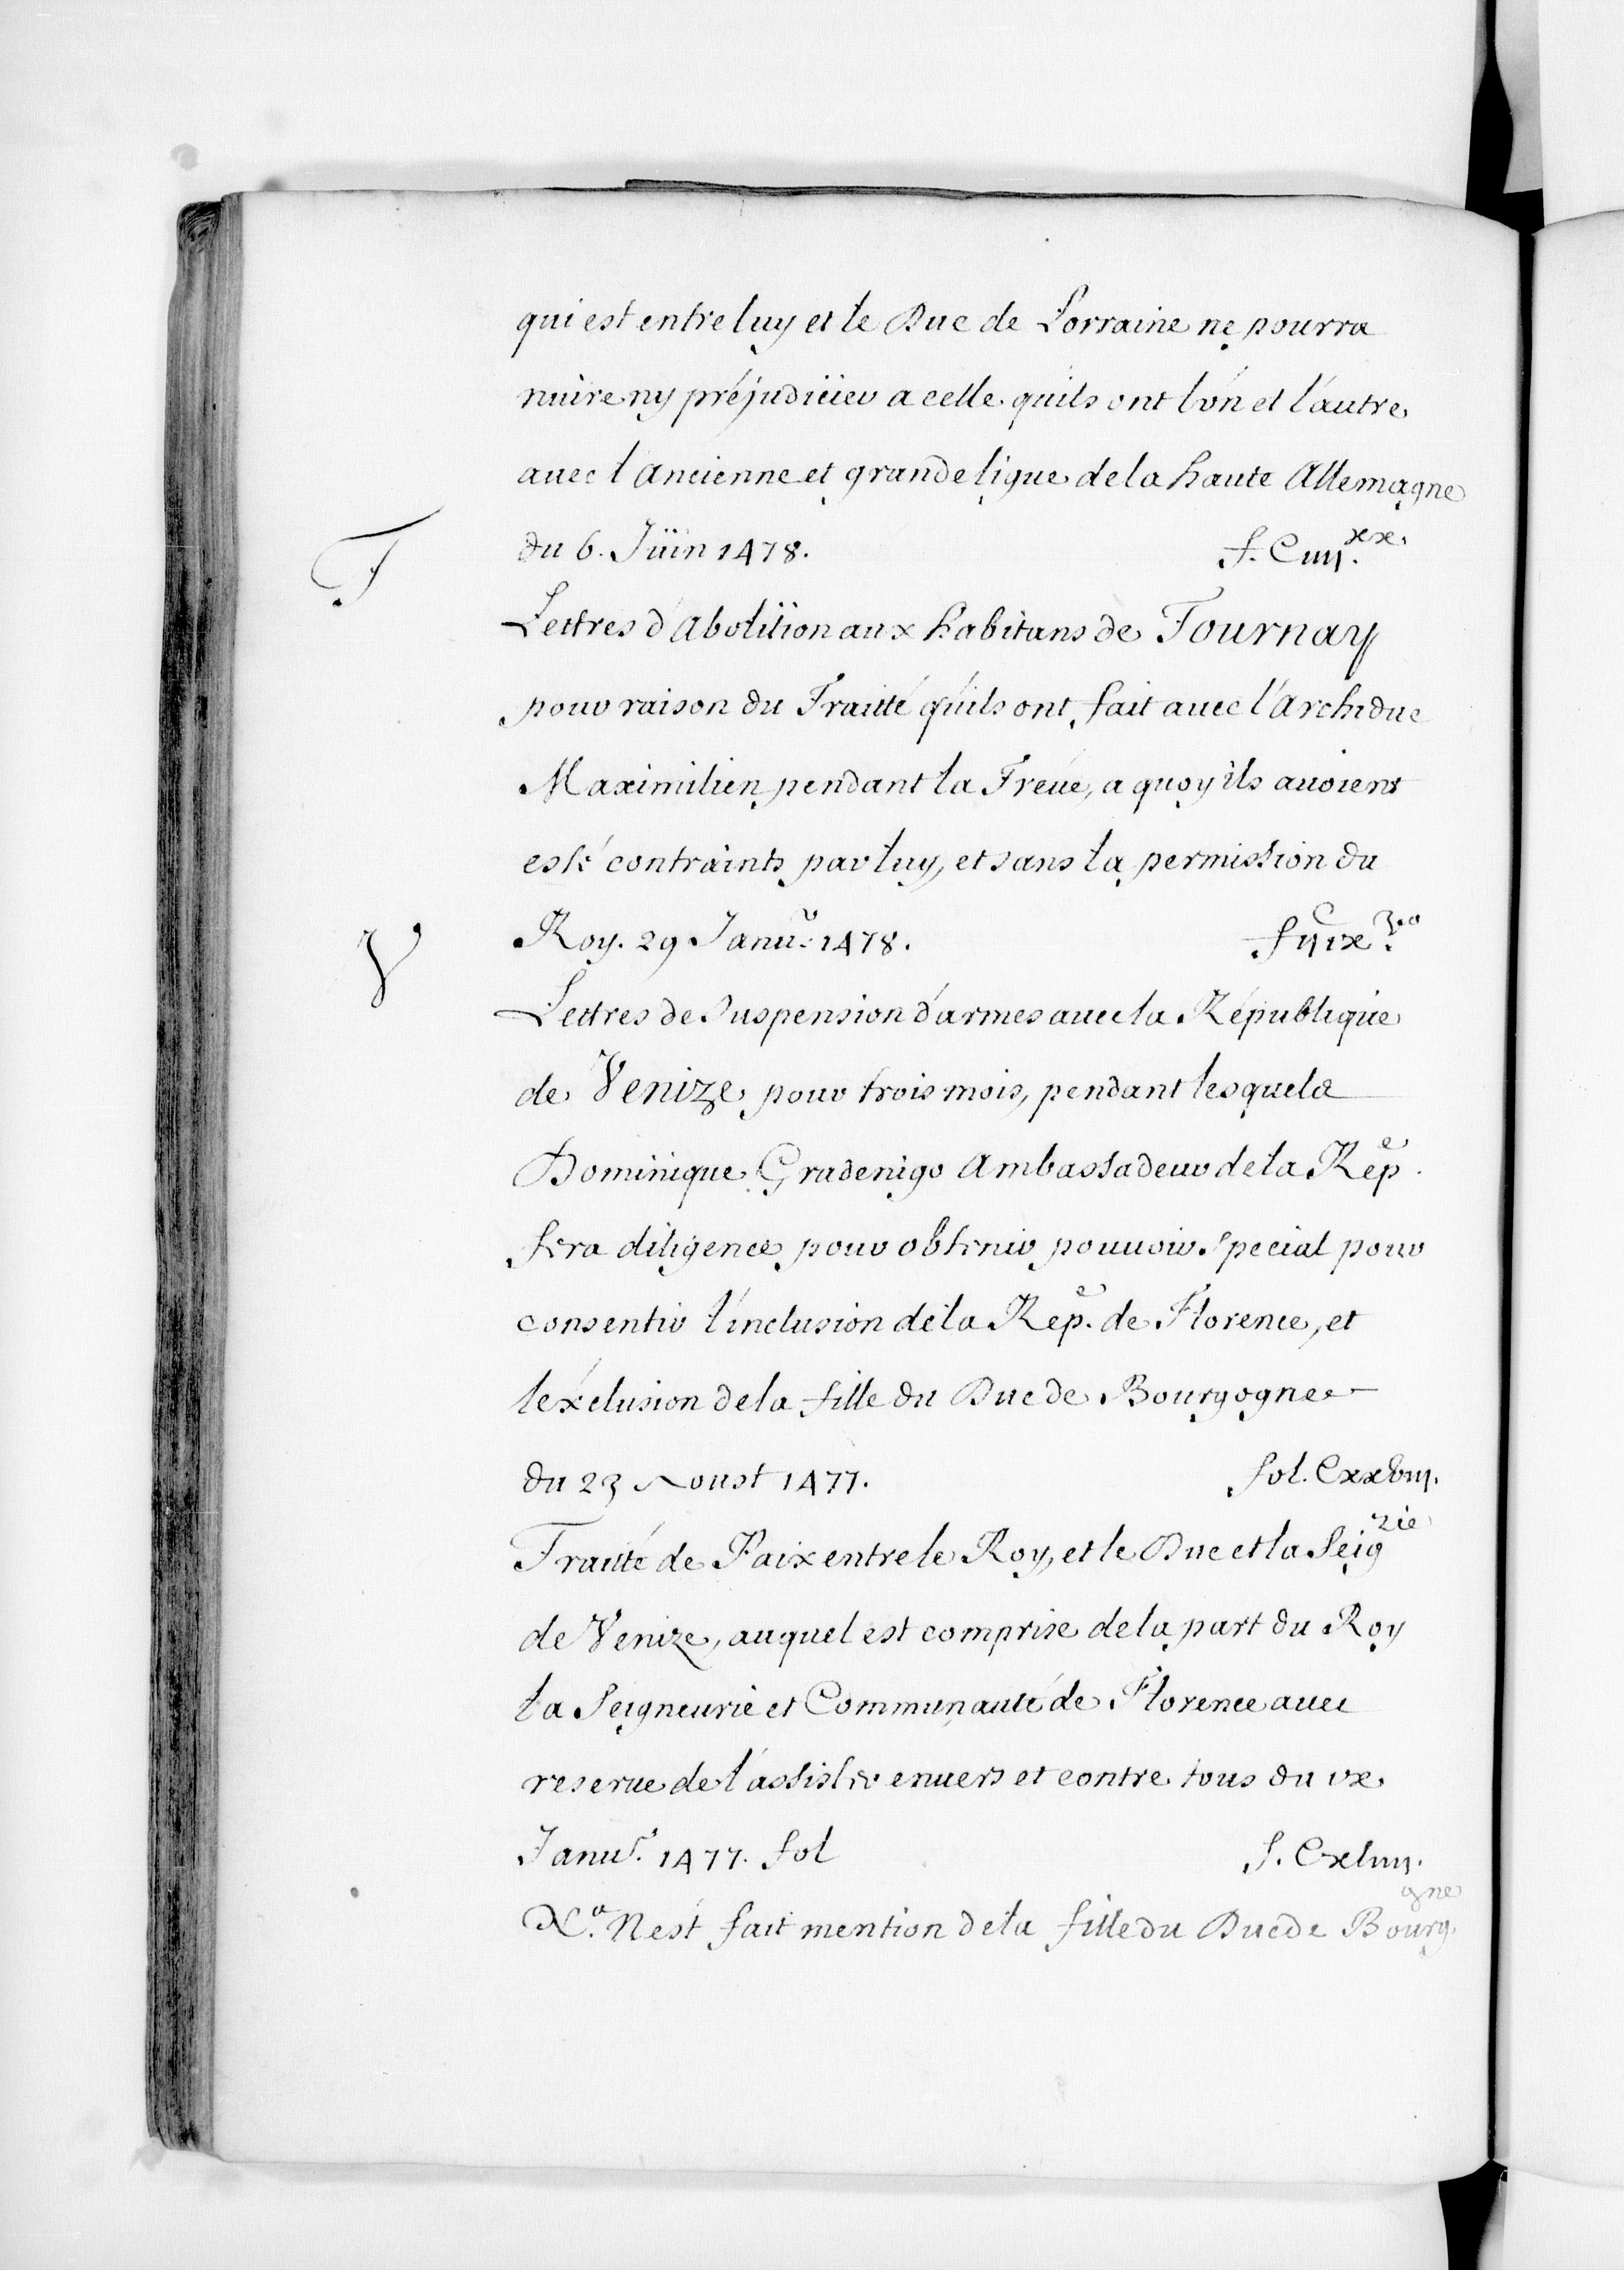 qui est entre luy et le Duc de Lorraine ne pourra
nuire ny préjudicier a celle quils ont l'vn et l'autre
auec l'Ancienne et grande ligue de la haute Allemagne
du 6. Jüin 1478. f. Ciiij.xx
T
Lettres d'Abolition aux habitans de Tournay
pour raison du Traitté qu'ils ont fait auec l'Archiduc
Maximilien pendant la Treue, a quoy ils auoient
esté contraints par luy, et sans la permission du
Roy. 29 Janur. 1478. fijcix vo.
V
Lettres de Suspension d'armes auec la République
de Venize pour trois mois, pendant lesquels
Dominique Gradenigo Ambassadeur de la Repe.
fera diligence pour obtenir pouuoir special pour
consentir l'inclusion de la Repe. de Florence, et
l'exclusion de la fille du Duc de Bourgogne
du 23 Aoust 1477. fol. Cxxviij.
Traité de Paix entre le Roy, et le Duc et la Seigrie
de Venize, auquel est comprise de la part du Roy
la Seigneurie et Communauté de Florence auec
reserue de l'assister enuers et contre tous du ix
Janur. 1477. fol f. Cxliiij.
Na. N'est fait mention de la fille du Duc de Bourgne